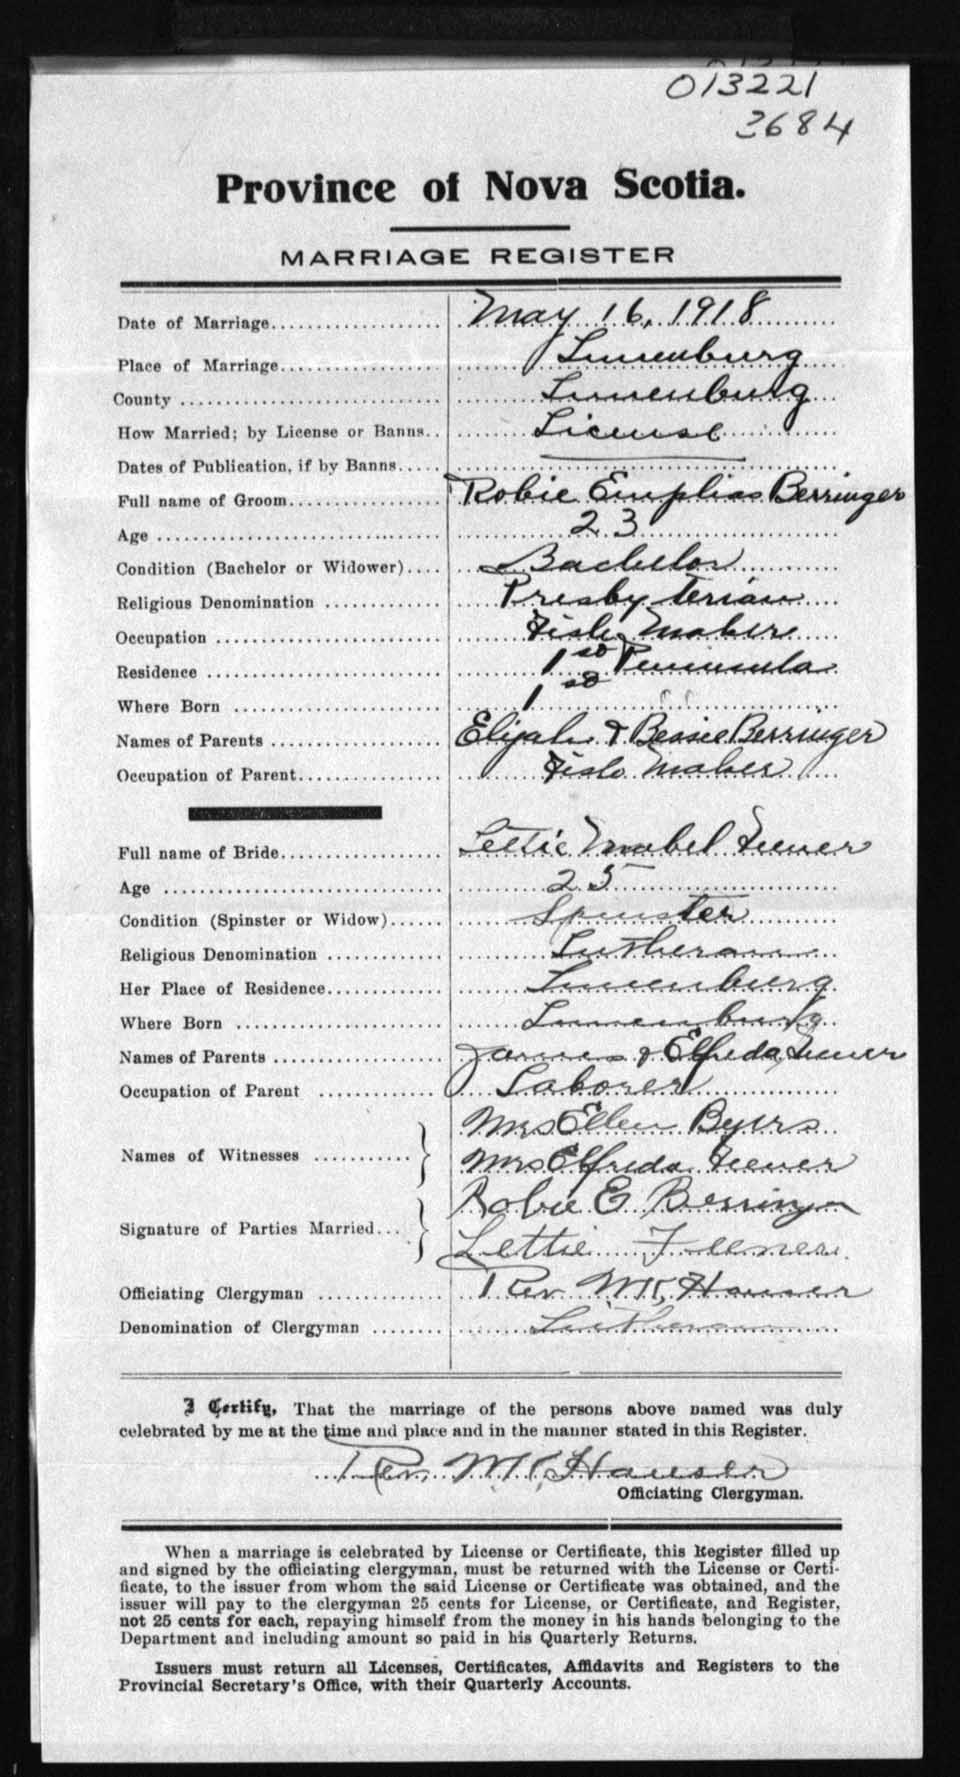 013221
3684
Province of Nova Scotia.
MARRIAGE REGISTER
Date of Marriage.................... May 16, 1918
Place of Marriage.................. Lunenburg
County ............................ Lunenburg
How Married; by License or Banns.. License
Dates of Publication, if by Banns.....
Full name of Groom................. Robie Berringer
Age ............................... 23
Condition (Bachelor or Widower).... Bachelor
Religious Denomination ............. Presbyterian
Occupation ........................ Fish Maker
Residence ......................... 1st Peninsula
Where Born ........................ 1st " "
Names of Parents .................. Elijah & Bessie Berringer
Occupation of Parent............... Fish Maker
Full name of Bride................. Lettie Mabel Feener
Age ............................... 25
Condition (Spinster or Widow)...... Spinster
Religious Denomination ............. Lutheran
Her Place of Residence............. Lunenburg
Where Born ........................ Lunenburg
Names of Parents .................. James & Elfreda Feener
Occupation of Parent .............. Laborer
Mrs Ellen Byers
Names of Witnesses ...........
Mrs Elfreda Feener
Robie E Berringer
Signature of Parties Married...
Lettie Feener
Officiating Clergyman .............. Rev. W K, Hauser
Denomination of Clergyman ........ Lutheran
I Certify, That the marriage of the persons above named was duly
celebrated by me at the time and place and in the manner stated in this Register.
Rev. W K, Hauser
Officiating Clergyman.
When a marriage is celebrated by License or Certificate, this Register filled up
and signed by the officiating clergyman, must be returned with the License or Certi-
ficate, to the issuer from whom the said License or Certificate was obtained, and the
issuer will pay to the clergyman 25 cents for License, or Certificate, and Register,
not 25 cents for each, repaying himself from the money in his hands belonging to the
Department and including amount so paid in his Quarterly Returns.
Issuers must return all Licenses, Certificates, Affidavits and Registers to the
Provincial Secretary's Office, with their Quarterly Accounts.